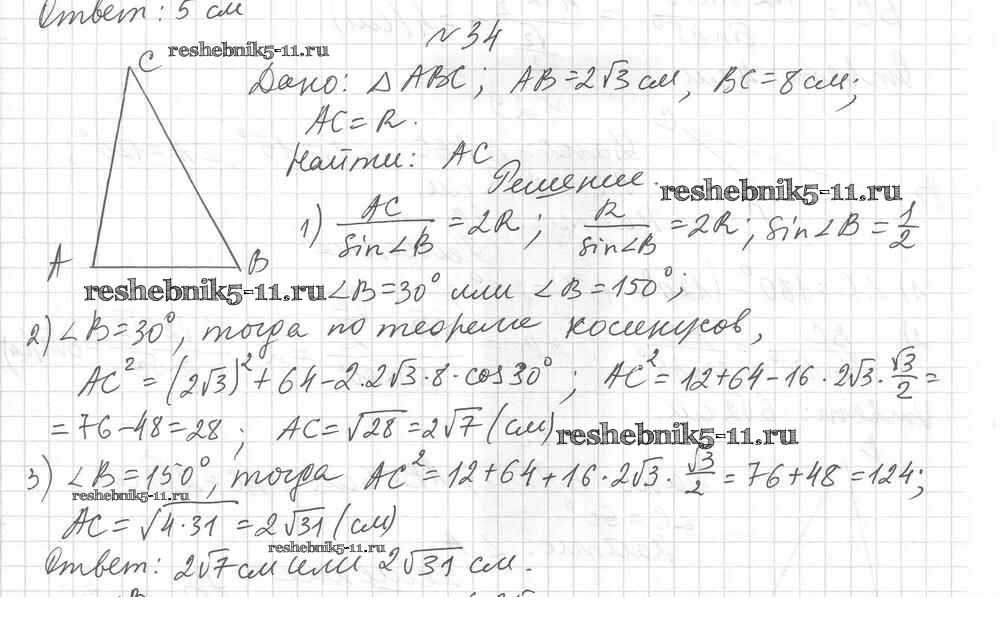 Ответ: 5 см
№34
reshebnik5-11.ru
C
Дано: △ABC; AB=2√3 см, BC=8 см;
AC=R.
Найти: AC
Решение.
reshebnik5-11.ru
1) AC/sin∠B =2R; R/sin∠B =2R; sin∠B = 1/2
A B
reshebnik5-11.ru ∠B=30° или ∠B=150°;
2) ∠B=30°, тогда по теореме косинусов,
AC² = (2√3)² + 64 - 2·2√3·8·cos30°; AC² = 12+64-16·2√3·√3/2 =
= 76-48=28; AC=√28=2√7 (см)
reshebnik5-11.ru
3) ∠B=150°, тогда AC²=12+64+16·2√3·√3/2=76+48=124;
reshebnik5-11.ru
AC=√4·31=2√31 (см)
reshebnik5-11.ru
Ответ: 2√7 см или 2√31 см.